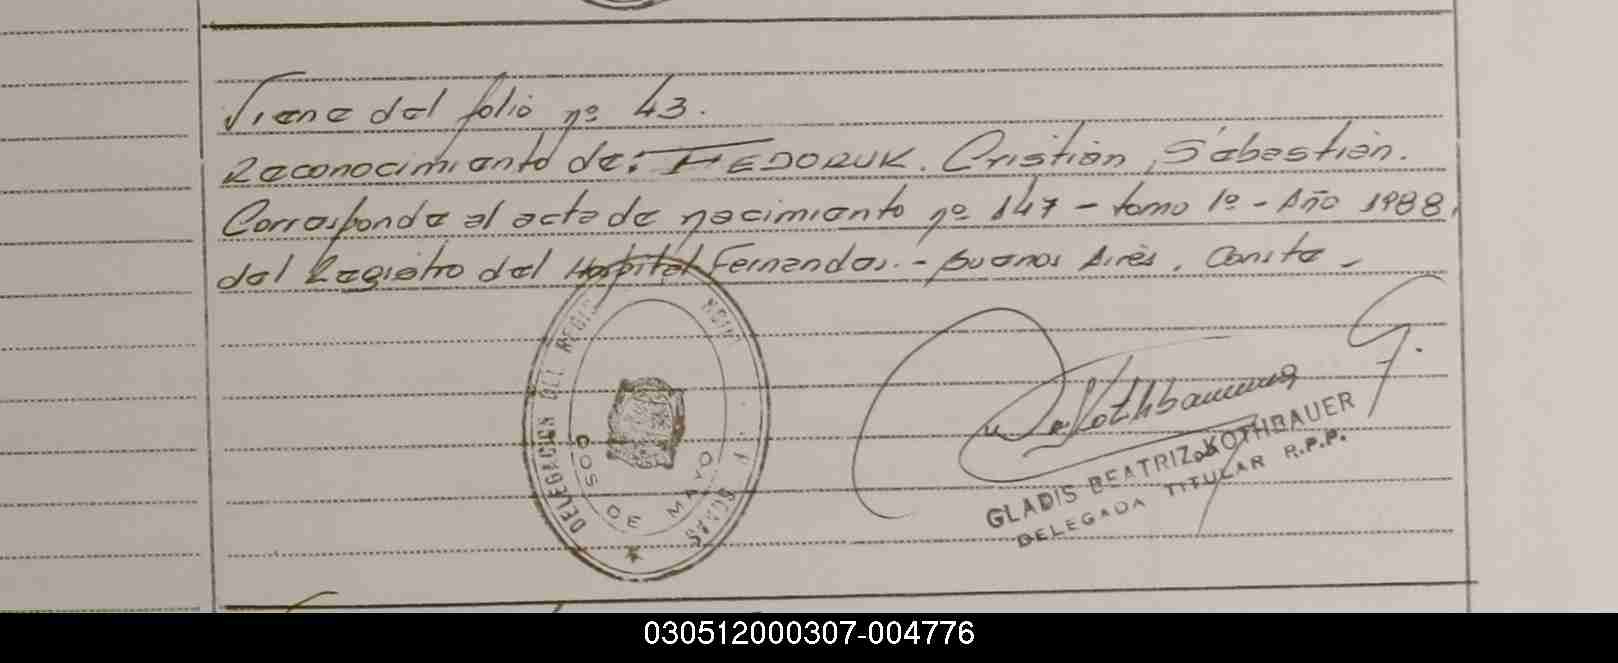 Viene del folio nº 43.
Reconocimiento de: FEDORUK. Cristián, Sebastián.
Corresponde al acta de nacimiento nº 147 - tomo 1º - Año 1988,
del Registro del Hospital Fernandes. - Buenos Aires. Conste -
DELEGACION DEL REGIS
DOS DE MAYO
GLADIS BEATRIZ KOTHBAUER
DELEGADA TITULAR R.P.P.
030512000307-004776